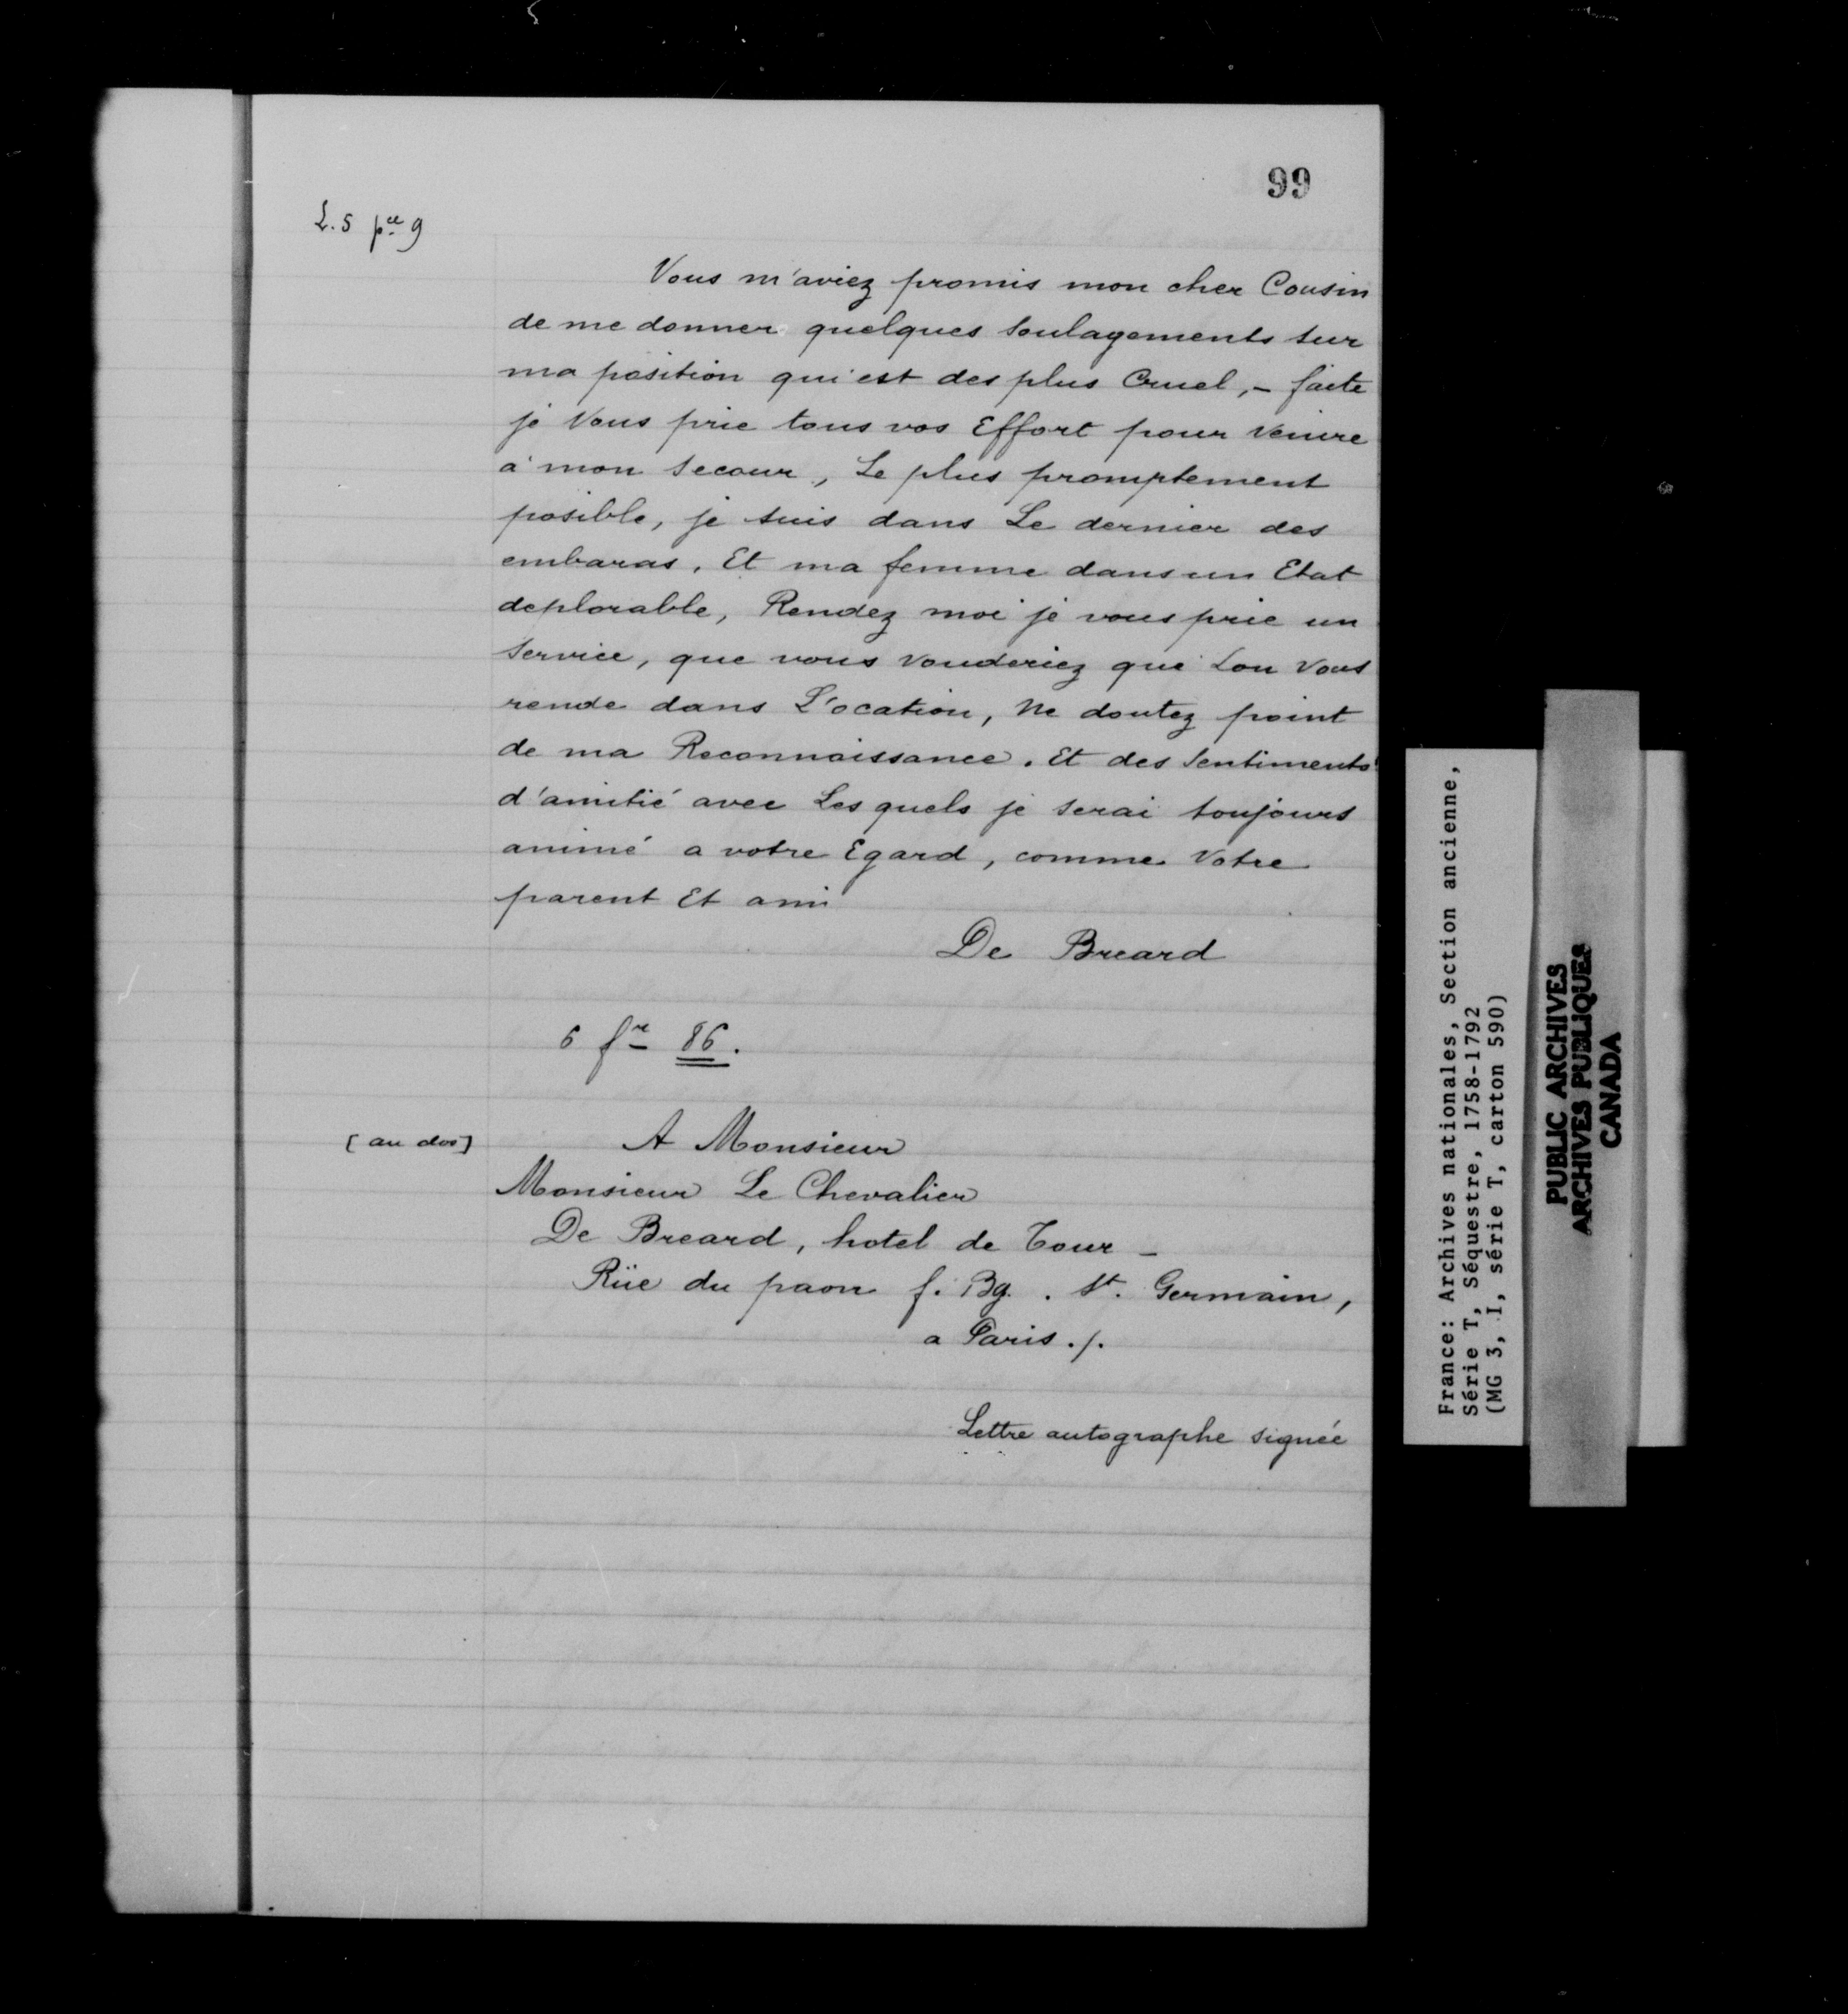 99
L. 5 pce 9
Vous m'aviez promis mon cher Cousin
de me donner quelques soulagements sur
ma position qui est des plus Cruel, - faite
je Vous prie tous vos Effort pour Venire
a mon secour, Le plus promptement
posible, je suis dans Le dernier des
embaras, Et ma femme dans un Etat
deplorable, Rendez moi je vous prie un
Service, que vous vouderiez que Lon Vous
rende dans L'ocation, Ne doutez point
de ma Reconnaissance. Et des Sentiments
d'amitié avec Les quels je serai toujours
animé a votre Egard, comme Votre
parent Et ami
De Breard
6 fr 86.
[au dos]
A Monsieur
Monsieur Le Chevalier
De Breard, hotel de Tour -
Rüe du paon f. Bg. St. Germain,
a Paris ./.
Lettre autographe signée
France: Archives nationales, Section ancienne,
Série T, Séquestre, 1758-1792
(MG 3, I, série T, carton 590)
PUBLIC ARCHIVES
ARCHIVES PUBLIQUES
CANADA